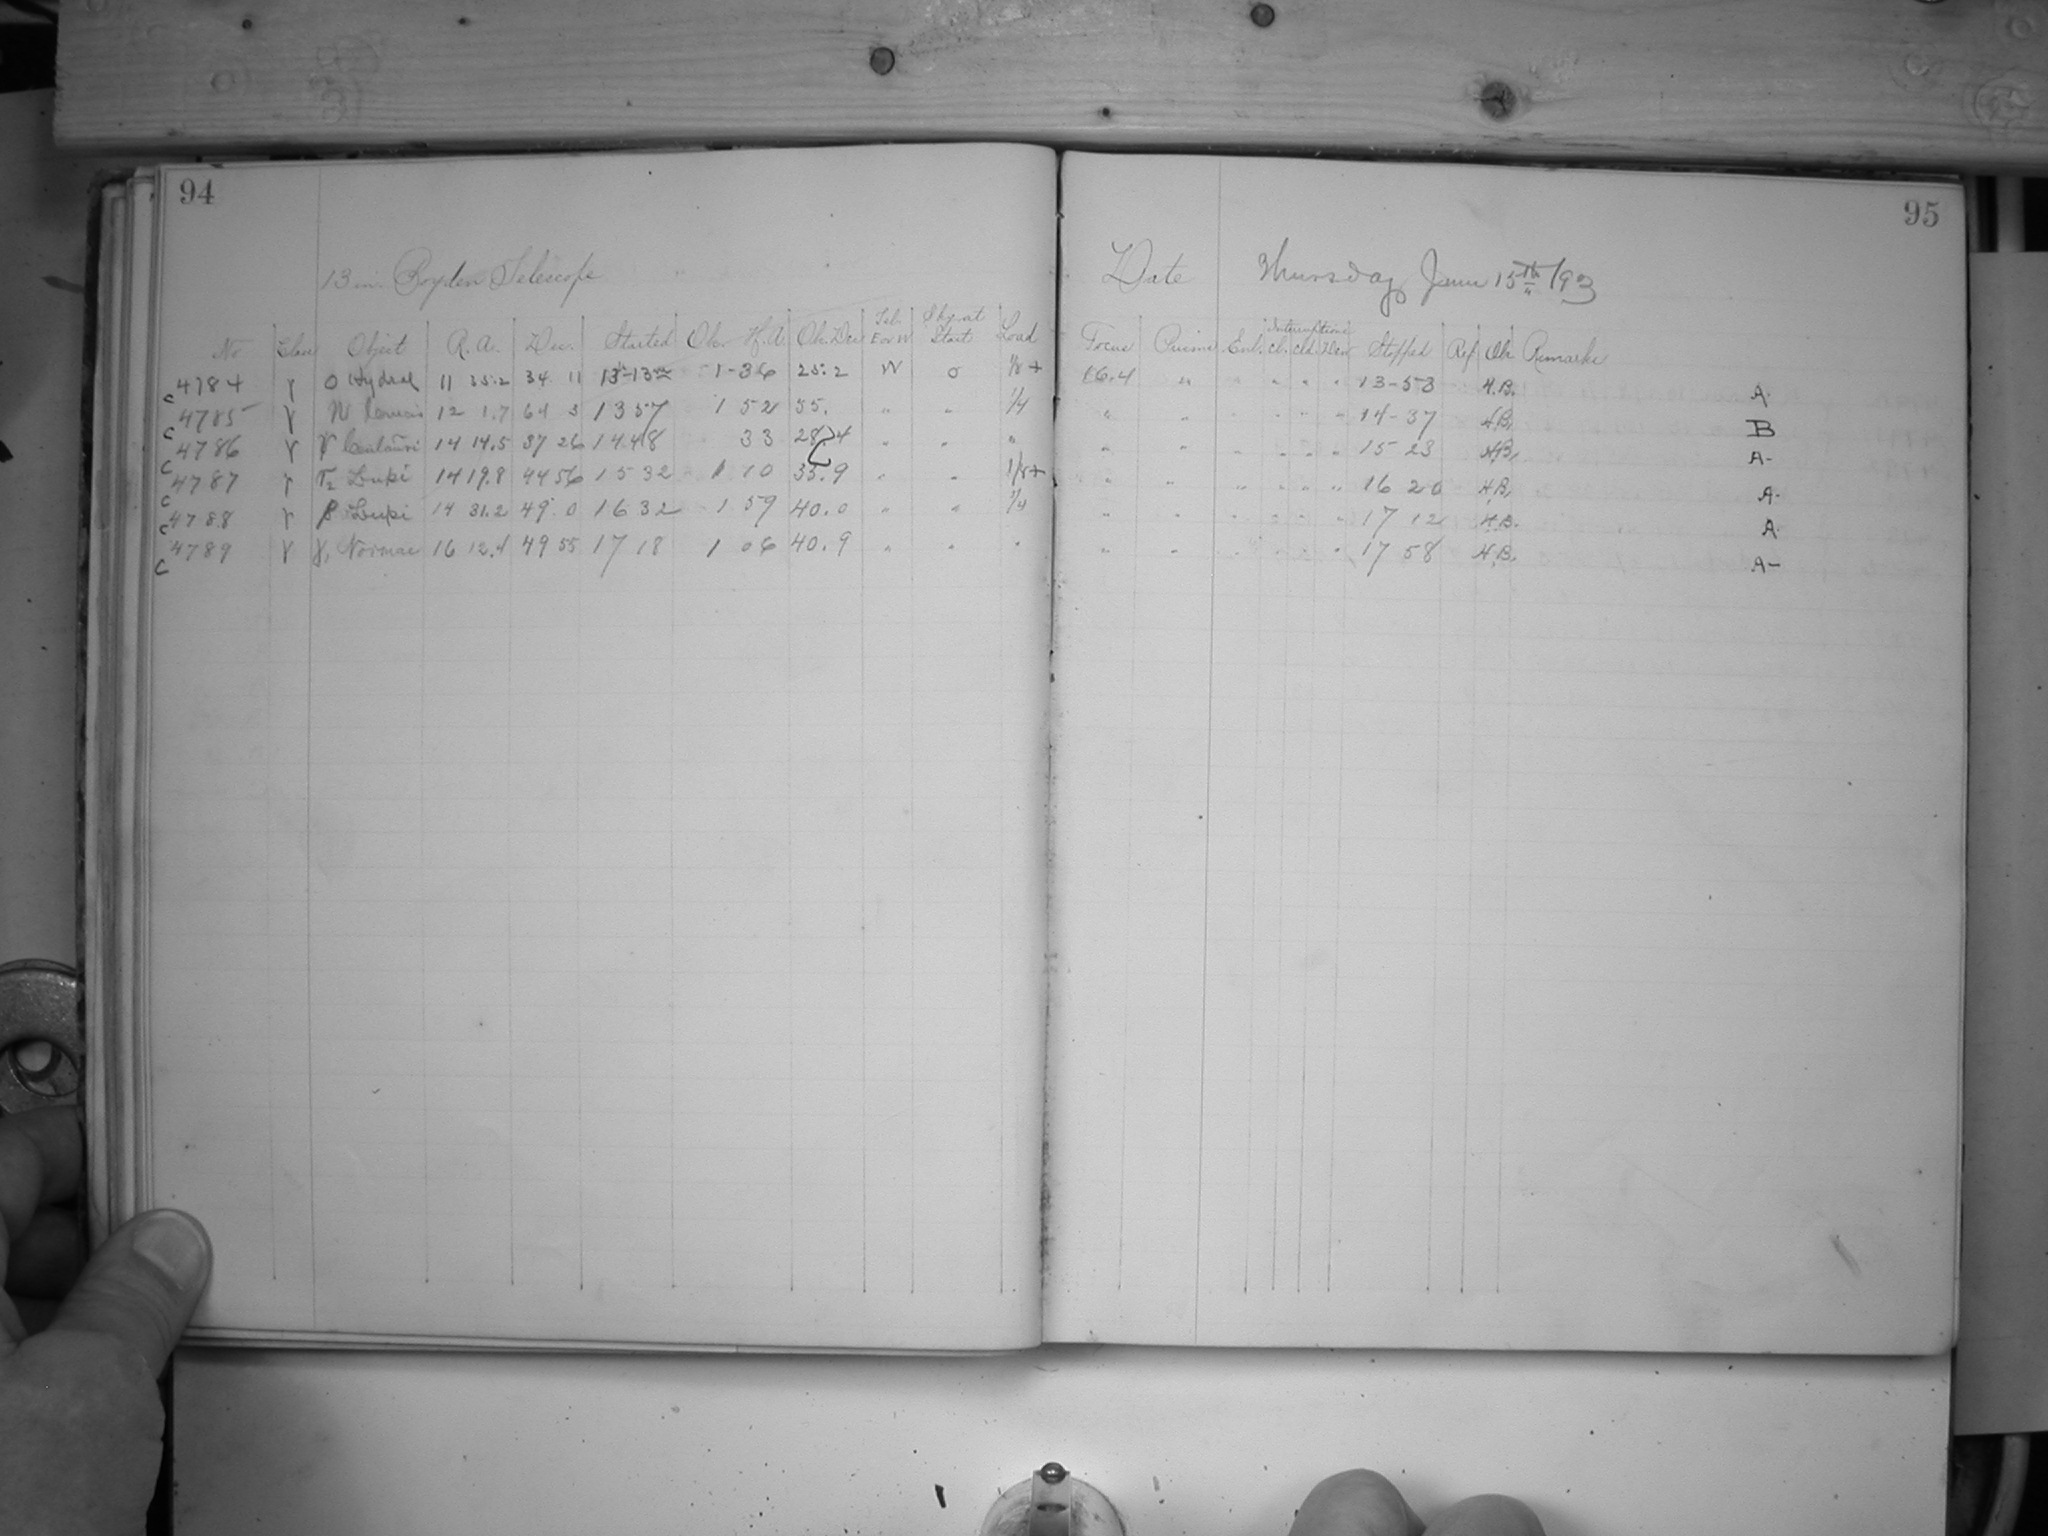 94
13 in. Boyden Telescope
No Class Object R.A. Dec. Started Obs. H.A. Obs. Dec Tel. E or W Sky at Start Load
4784 γ O Hydrae 11 35.2 34 11 13h-13m 1-36 25.2 W 0 1/8 +
c 4785 γ 12 1.7 64 3 13 57 1 52 55. " " 1/4
c 4786 γ Centauri 14 14.5 37 26 14 48 33 28.4 " " "
c 4787 γ T2 Lupi 14 19.8 44 56 15 32 1 10 35.9 " " 1/8 +
c 4788 γ Lupi 14 31.2 49 0 16 32 1 59 40.0 " " 1/4
c 4789 γ γ, Normae 16 12.4 49 55 17 18 1 06 40.9 " " "
c
95
Date Thursday June 15th /93
Focus Prisms Exl. Interruptions Cl. Cld. Dew Stopped Ref Ob Remarks
16.4 " " " " " 13-53 H.B. A.
" " " " " " 14-37 H.B. B
" " " " " " 15 23 H.B. A-
" " " " " " 16 20 H.B. A.
" " " " " " 17 12 H.B. A.
" " " " " " 17 58 H.B. A-